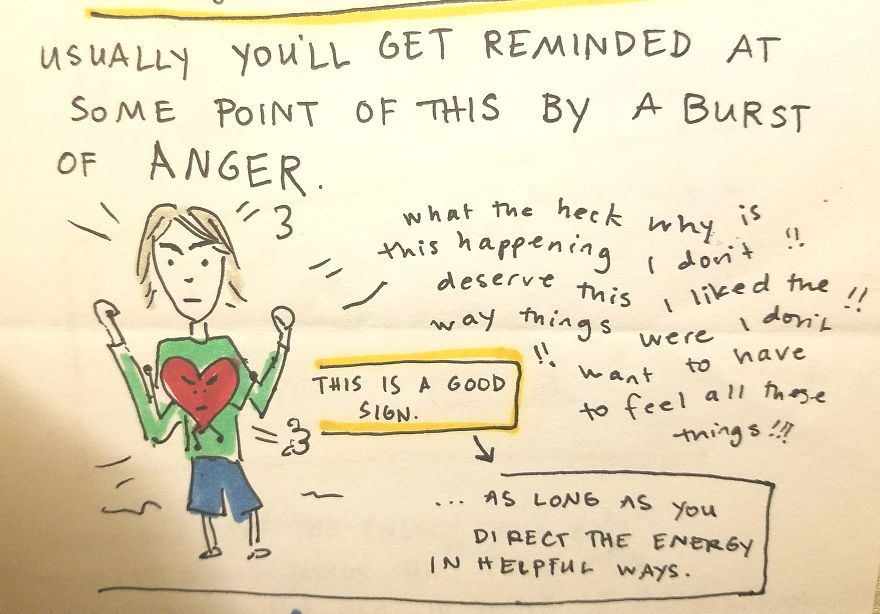 USUALLY YOU'LL GET REMINDED AT
SOME POINT OF THIS BY A BURST
OF ANGER.
what the heck why is
this happening I don't !!
deserve this I liked the
way things were I don't !!
!! want to have
to feel all these
things!!!
THIS IS A GOOD
SIGN.
... AS LONG AS YOU
DIRECT THE ENERGY
IN HELPFUL WAYS.